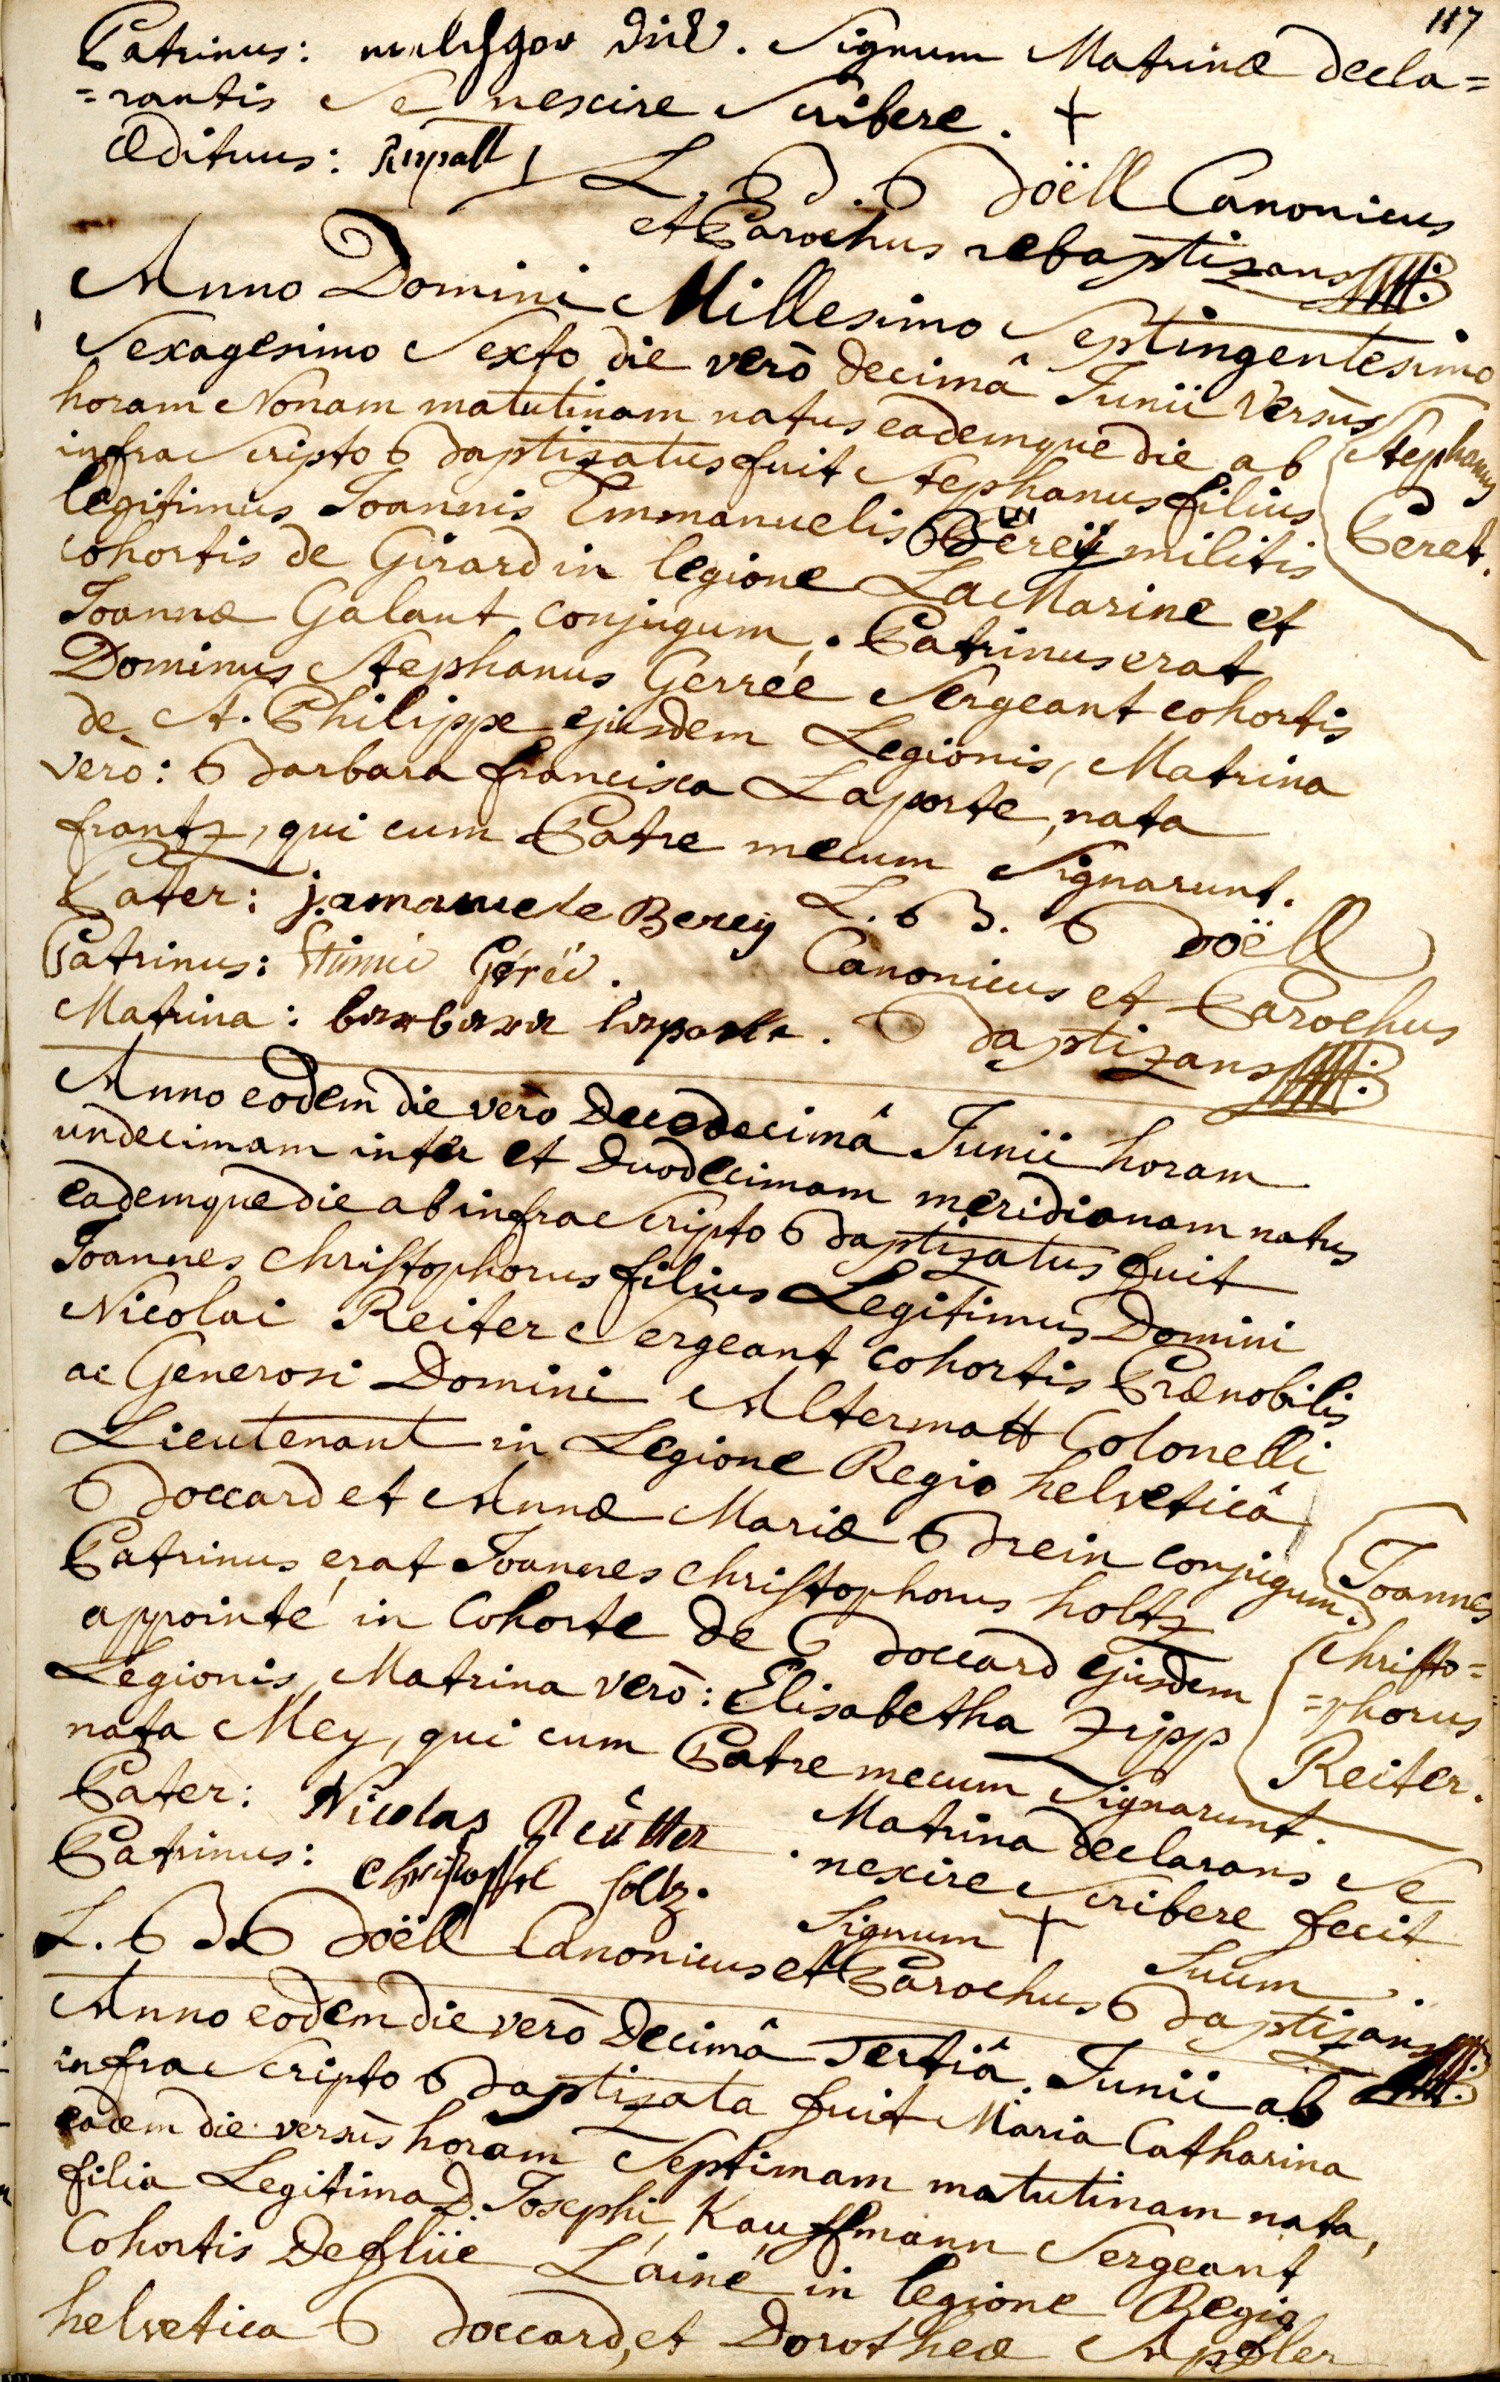 117
Patrinus: melchyor Dire. Signum Matrinæ decla=
=rantis se nescire scribere. +
Ædituus: Rupalt
L. B. Boëll Canonicus
et Parochus rebaptizans
Anno Domini Millesimo Septingentesimo
Sexagesimo Sexto die verò decimâ Junii versùs
horam Nonam matutinam natus eademque die ab
infra scripto Baptizatus fuit Stephanus filius
legitimus Joannis Emmanuelis Berey militis
cohortis de Girard in legione La Marine et
Joannæ Galant conjugum. Patrinus erat
Dominus Stephanus Gerrée Sergeant cohortis
de St. Philippe ejusdem Legionis, Matrina
verò: Barbara francisca Laporte, nata
frantz, qui cum Patre mecum Signarunt.
Stephanus
Peret.
Pater: j. amanuele Berey
Patrinus: Géréé.
Matrina: barbara laporte.
L. B. Boëll
Canonicus et Parochus
Baptizans
Anno eodem die verò Decodecimâ Junii horam
undecimam inter et Duodecimam meridianam natus
eademque die ab infra scripto Baptizatus fuit
Joannes Christophorus filius Legitimus Domini
Nicolai Reiter Sergeant cohortis Prænobilis
ac Generosi Domini Altermatt Colonelli
Lieutenant in Legione Regia helveticâ
Boccard et Annæ Mariæ Brein conjugum.
Patrinus erat Joannes Christophorus holtz
appointé in Cohorte de Boccard ejusdem
Legionis, Matrina verò: Elisabetha Zipp
nata Mey, qui cum Patre mecum Signarunt.
Joannes
Christo=
=phorus
Reiter.
Pater: Nicolas Reütter
Patrinus: Christoffel holtz.
Matrina declarans se
nescire scribere fecit
Signum + Suum.
L. B. Boëll Canonicus et Parochus Baptizans
Anno eodem die verò Decimâ Tertiâ Junii ab
infra scripto Baptizata fuit Maria Catharina
eadem die versùs horam Septimam matutinam nata,
filia Legitima D. Josephi Kauffmann Sergeant
Cohortis Deflüe L'ainé in legione Regia
helvetica Boccard, et Dorotheæ Appler